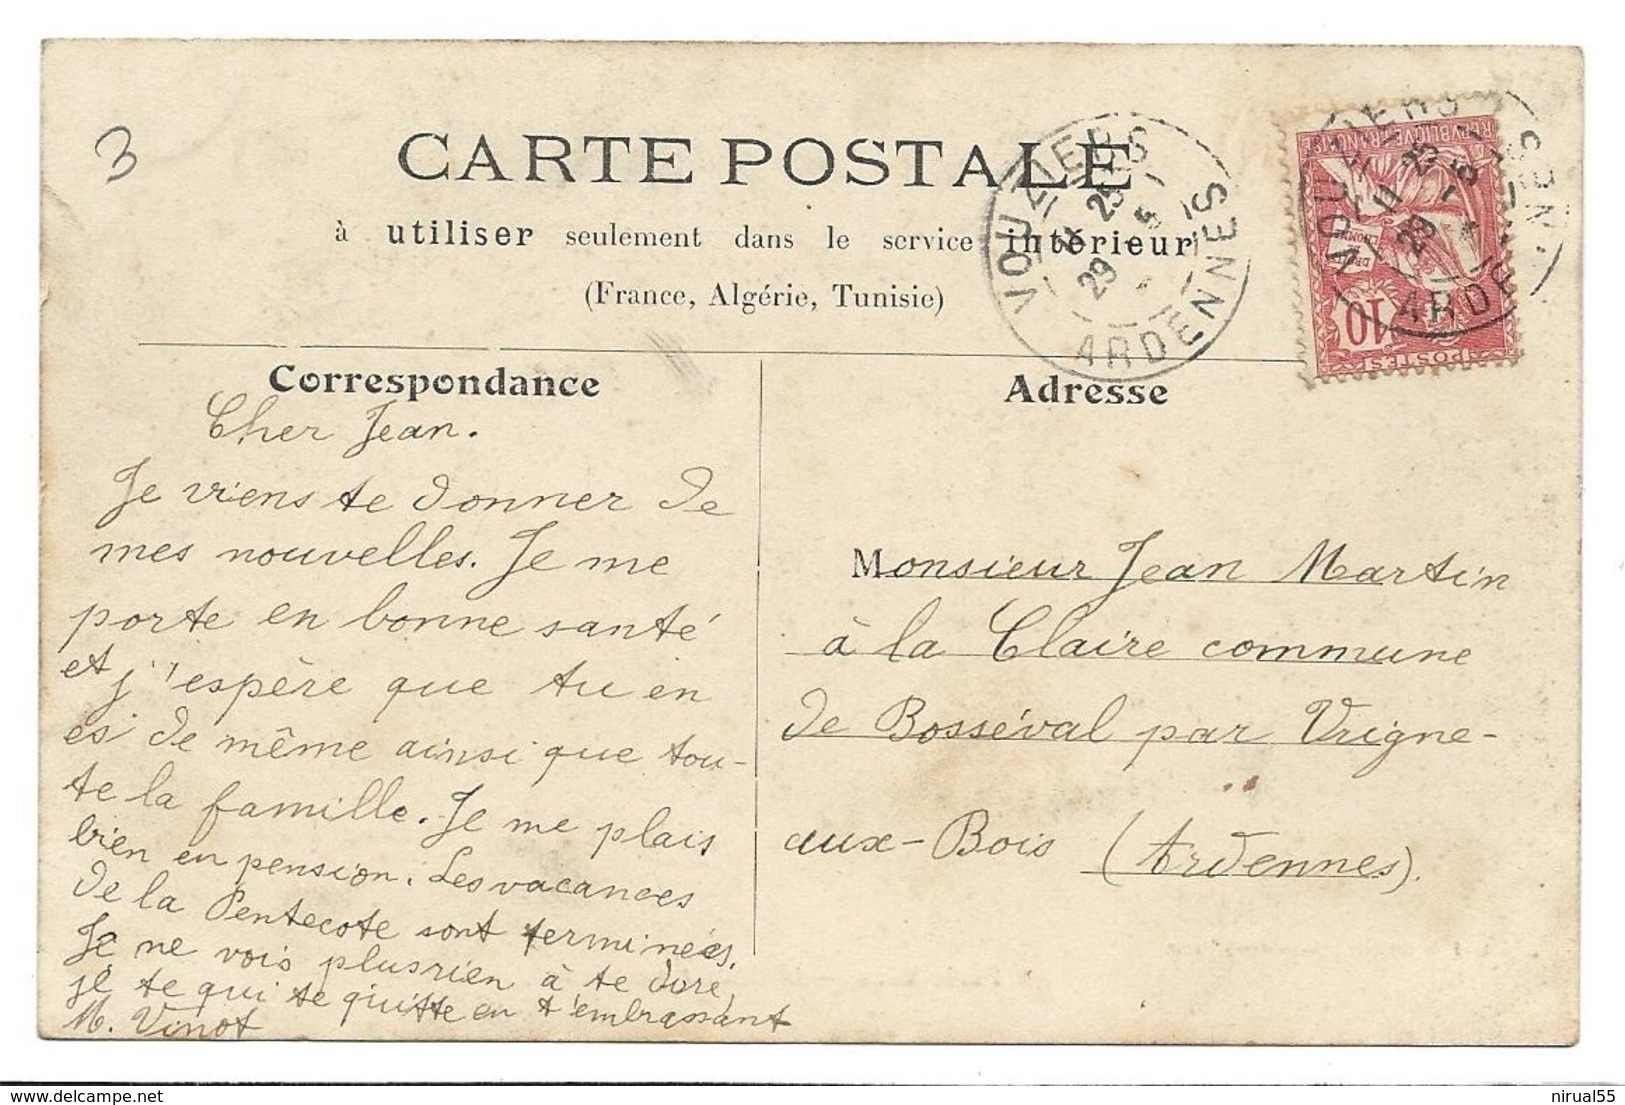 3
CARTE POSTALE
à utiliser seulement dans le service intérieur
(France, Algérie, Tunisie)
VOUZIERS
11 25
29 -5
ARDENNES
VOUZIERS
11 25
29 -5
ARDENNES
REPUBLIQUE FRANÇAISE
DROITS DE L'HOMME
10
POSTES
Correspondance
Cher Jean.
Je viens te donner de
mes nouvelles. Je me
porte en bonne santé
et j'espère que tu en
es de même ainsi que tou-
te la famille. Je me plais
bien en pension. Les vacances
de la Pentecote sont terminées.
Je ne vois plus rien à te dire,
je te qui te quitte en t'embrassant
M. Vinot
Adresse
Monsieur Jean Martin
à la Claire commune
de Bosséval par Vrigne-
aux-Bois (Ardennes).
delcampe.net
nirual55